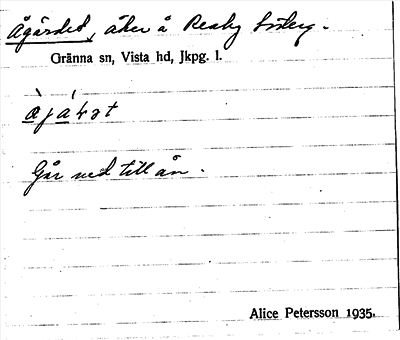 Ågärdet, åker å Reaby söderg.
Gränna sn, Vista hd, Jkpg. l.
Går ned till ån.
Alice Petersson 1935.